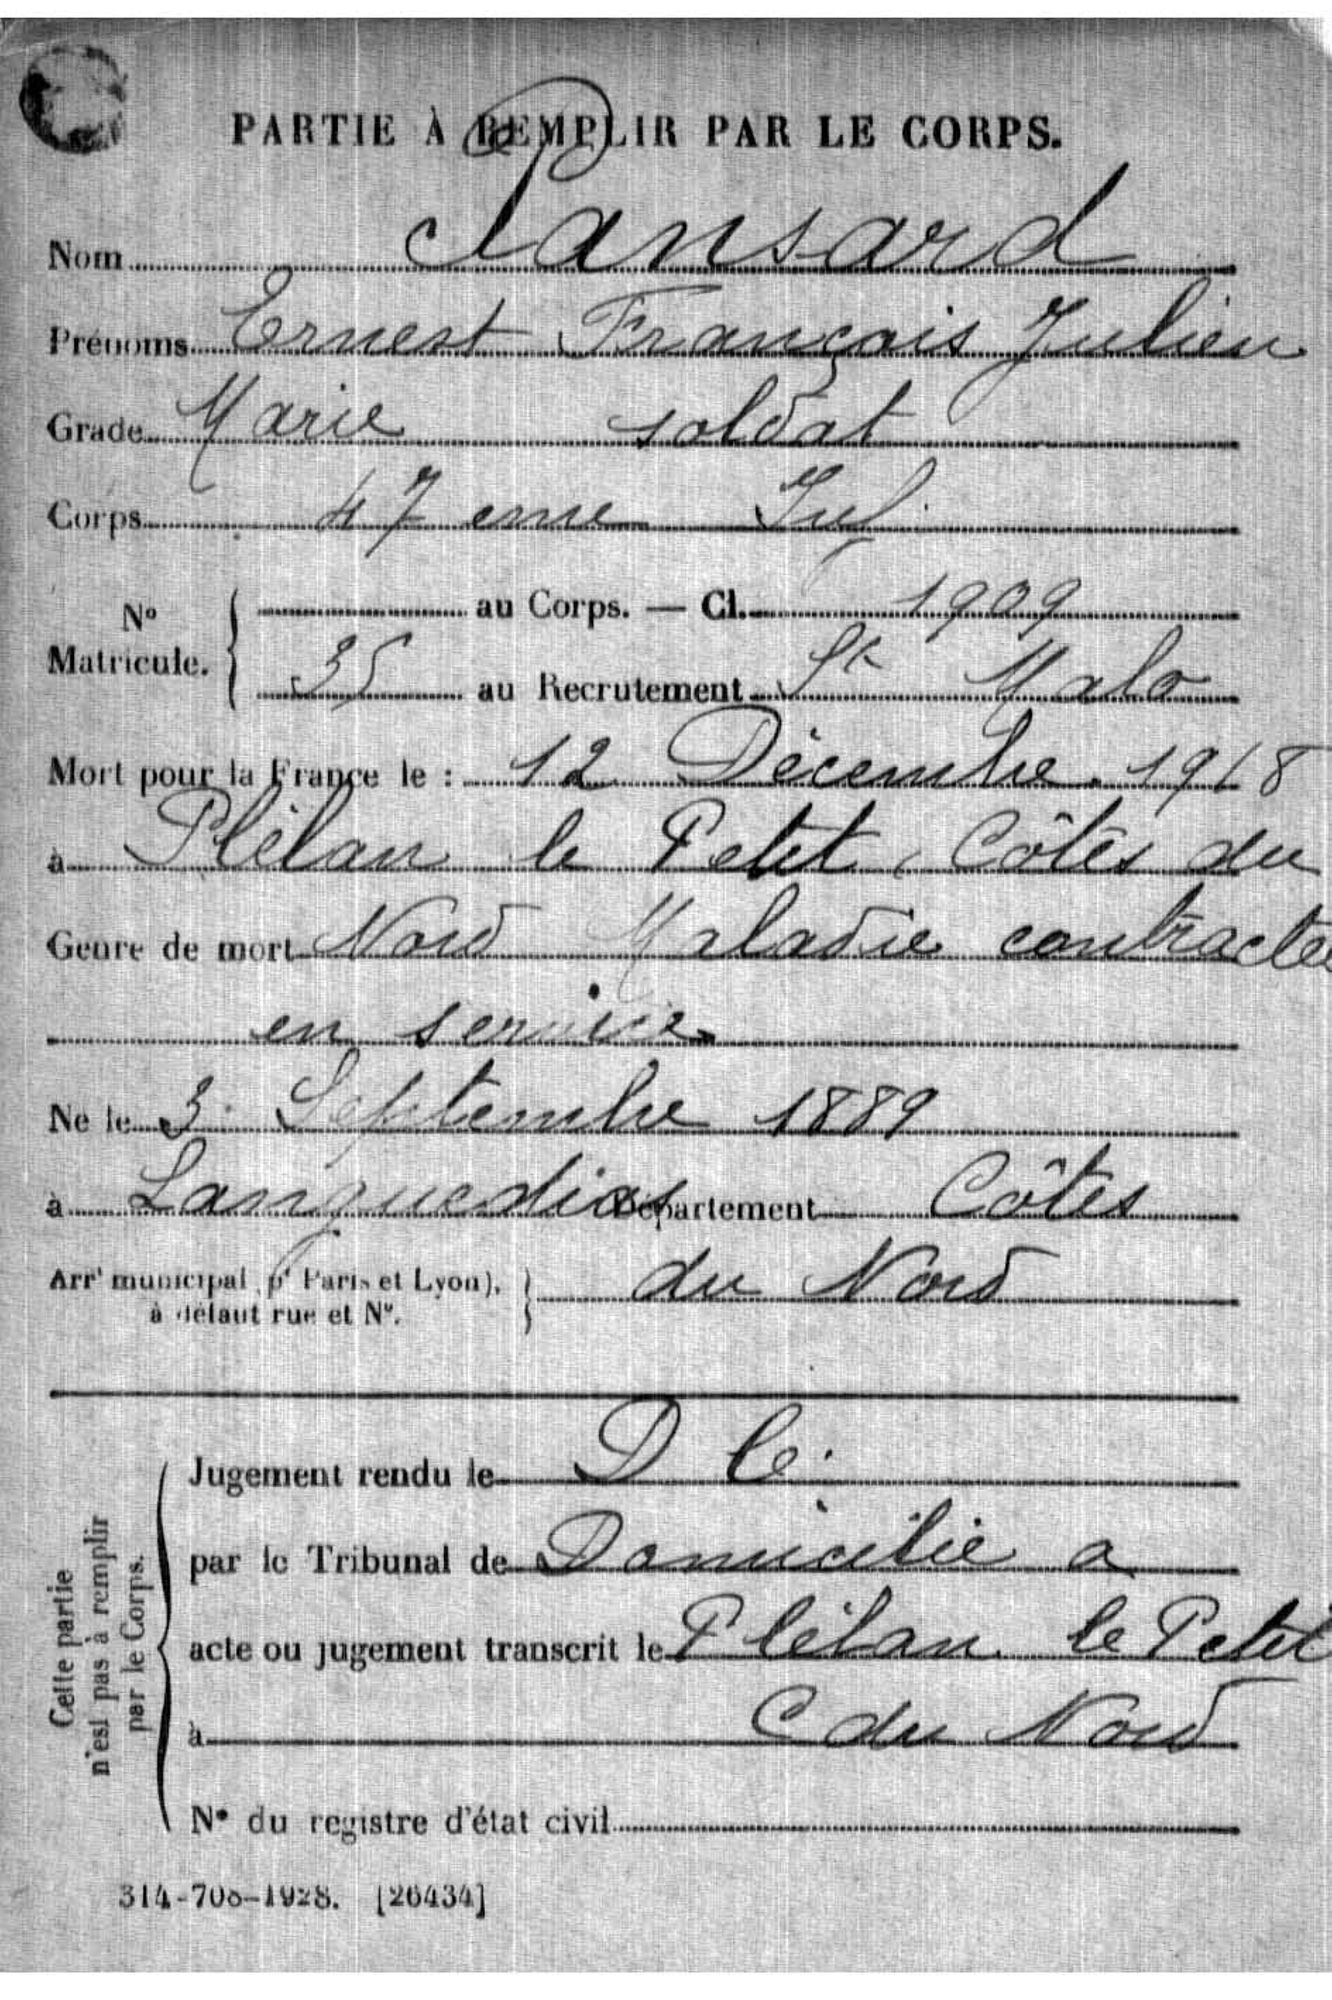 PARTIE À REMPLIR PAR LE CORPS.
Nom Pansard
Prénoms Ernest François Julien
Grade Marie soldat
Corps 47 eme Inf.
N° Matricule. au Corps. — Cl. 1909
35 au Recrutement St Malo
Mort pour la France le : 12 Décembre 1918
à Plélan le Petit, Côtes du
Genre de mort Nord Maladie contractée
en service
Ne le 3 Septembre 1889
à Languedias Département Côtes
Arrt municipal pr Paris et Lyon), à défaut rue et N°. du Nord
Cette partie n'est pas à remplir par le Corps.
Jugement rendu le D C.
par le Tribunal de Domicilié a
acte ou jugement transcrit le Plélan le Petit
à C du Nord
N° du registre d'état civil
314-708-1928. [26434]